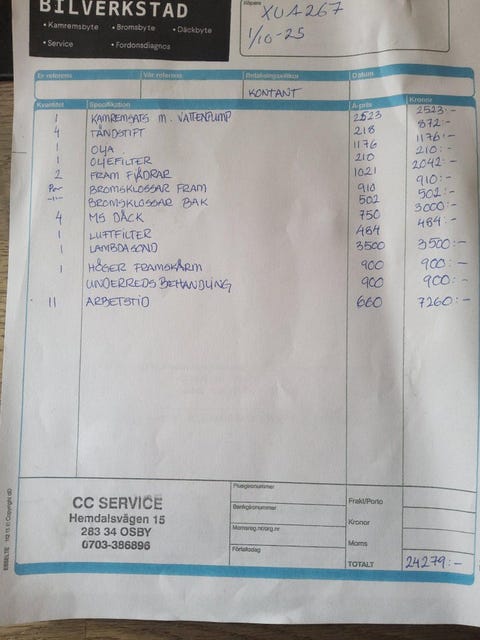 BILVERKSTAD
• Kamremsbyte • Bromsbyte • Däckbyte
• Service • Fordonsdiagnos
Köpare
XUA267
1/10-25
Er referens Vår referens Betalningsvillkor Datum
KONTANT
Kvantitet Specifikation À-pris Kronor
1 KAMREMSATS M. VATTENPUMP 2523 2523:-
4 TÄNDSTIFT 218 872:-
1 OLJA 1176 1176:-
1 OLJEFILTER 210 210:-
2 FRAM FJÄDRAR 1021 2042:-
Par BROMSKLOSSAR FRAM 910 910:-
-"- BROMSKLOSSAR BAK 502 502:-
4 MS DÄCK 750 3000:-
1 LUFTFILTER 484 484:-
1 LAMBDASOND 3500 3500:-
1 HÖGER FRAMSKÄRM 900 900:-
UNDERREDSBEHANDLING 900 900:-
11 ARBETSTID 660 7260:-
CC SERVICE
Hemdalsvägen 15
283 34 OSBY
0703-386896
Plusgironummer
Bankgironummer
Momsreg.nr/org.nr
Förfallodag
Frakt/Porto
Kronor
Moms
TOTALT 24279:-